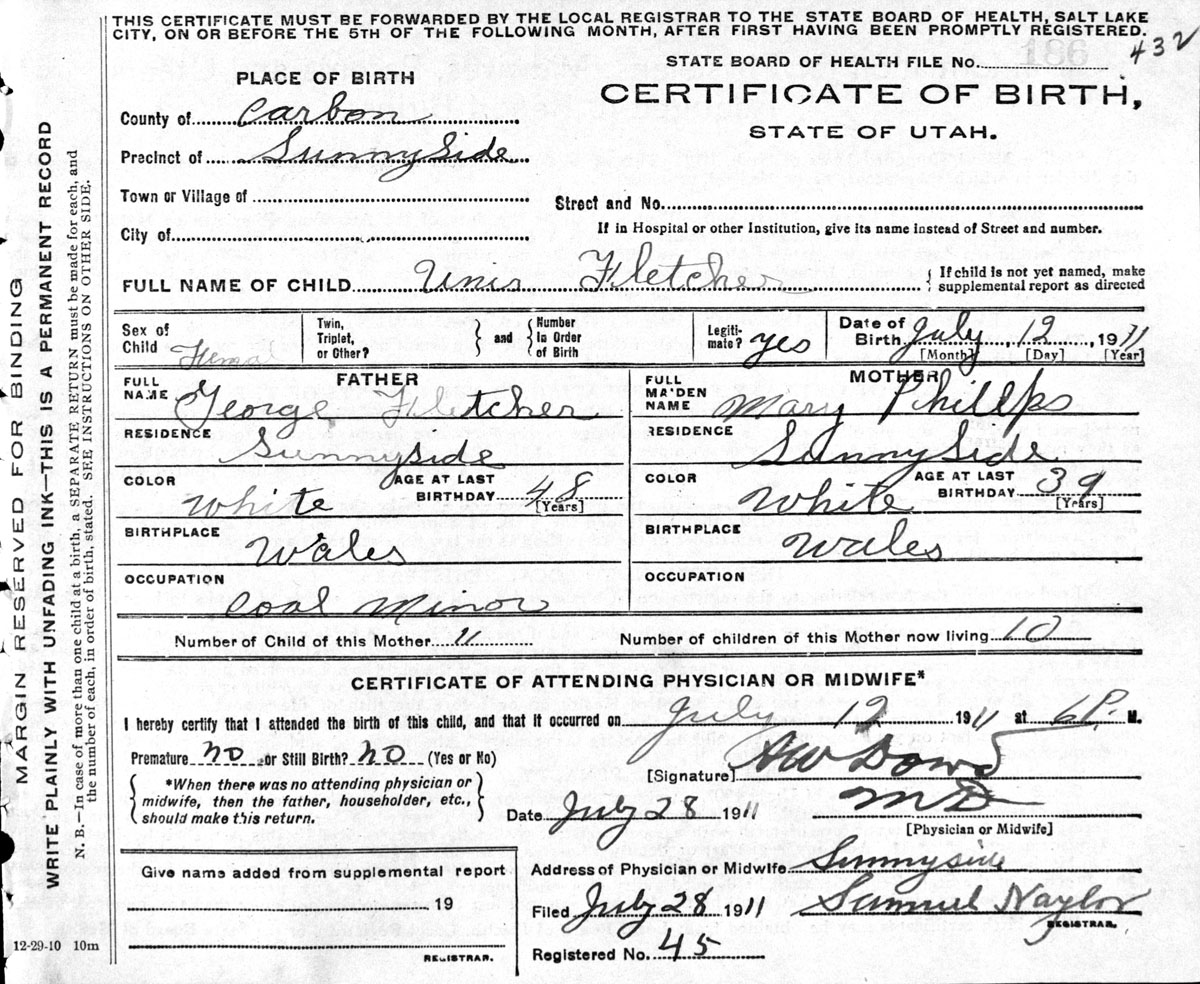 THIS CERTIFICATE MUST BE FORWARDED BY THE LOCAL REGISTRAR TO THE STATE BOARD OF HEALTH, SALT LAKE
CITY, ON OR BEFORE THE 5TH OF THE FOLLOWING MONTH, AFTER FIRST HAVING BEEN PROMPTLY REGISTERED.
186 432
STATE BOARD OF HEALTH FILE No.
PLACE OF BIRTH
CERTIFICATE OF BIRTH,
STATE OF UTAH.
County of Carbon
Precinct of SunnySide
Town or Village of
Street and No.
City of
If in Hospital or other Institution, give its name instead of Street and number.
FULL NAME OF CHILD Unis Fletcher { If child is not yet named, make
supplemental report as directed
Sex of Child Femal
Twin, Triplet, or Other? } and { Number In Order of Birth
Legitimate? yes
Date of Birth July 12, 1911
[Month] [Day] [Year]
FATHER
FULL NAME George Fletcher
RESIDENCE Sunnyside
COLOR White AGE AT LAST BIRTHDAY 48 [Years]
BIRTHPLACE Wales
OCCUPATION Coal Minor
MOTHER
FULL MAIDEN NAME Mary Phillps
RESIDENCE SunnySide
COLOR White AGE AT LAST BIRTHDAY 39 [Years]
BIRTHPLACE Wales
OCCUPATION
Number of Child of this Mother 11 Number of children of this Mother now living 10
CERTIFICATE OF ATTENDING PHYSICIAN OR MIDWIFE*
I hereby certify that I attended the birth of this child, and that it occurred on July 12 1911 at 6 P. M.
Premature no or Still Birth? no (Yes or No)
[Signature] AW Dowd
MD
[Physician or Midwife]
{ *When there was no attending physician or
midwife, then the father, householder, etc.,
should make this return. }
Date July 28 1911
Give name added from supplemental report
19
REGISTRAR.
Address of Physician or Midwife Sunnyside
Filed July 28 1911 Samuel Naylor
REGISTRAR.
Registered No. 45
12-29-10 10m
MARGIN RESERVED FOR BINDING
WRITE PLAINLY WITH UNFADING INK—THIS IS A PERMANENT RECORD
N. B.—In case of more than one child at a birth, a SEPARATE RETURN must be made for each, and
the number of each, in order of birth, stated. SEE INSTRUCTIONS ON OTHER SIDE.